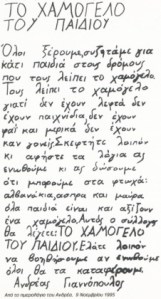 ΤΟ ΧΑΜΟΓΕΛΟ
ΤΟΥ ΠΑΙΔΙΟΥ
Όλοι ξέρουμε, συζητάμε για
κάτι παιδιά στους δρόμους
που τους λείπει το χαμόγελο.
Τους λείπει το χαμόγελο
γιατί δεν έχουν λεφτά δεν
έχουν παιχνίδια, δεν έχουν
φαΐ και μερικά δεν έχουν
καν γονείς. Σκεφτήτε λοιπόν
κι αφήστε τα λόγια ας
ενωθούμε κι ας δώσουμε
ότι μπορούμε στα φτωχά:
αλβανάκια, άσπρα και μαύρα
όλα παιδιά είναι και αξίζουν
ένα χαμόγελο. Αυτός ο σύλλογος
θα λέγεται: ΤΟ ΧΑΜΟΓΕΛΟ
ΤΟΥ ΠΑΙΔΙΟΥ. Ελάτε λοιπόν
να βοηθήσουμε αν ενωθούμε
όλοι θα τα καταφέρουμε.
Ανδρέας Γιαννόπουλος
Από το ημερολόγιο του Ανδρέα, 9 Νοεμβρίου 1995